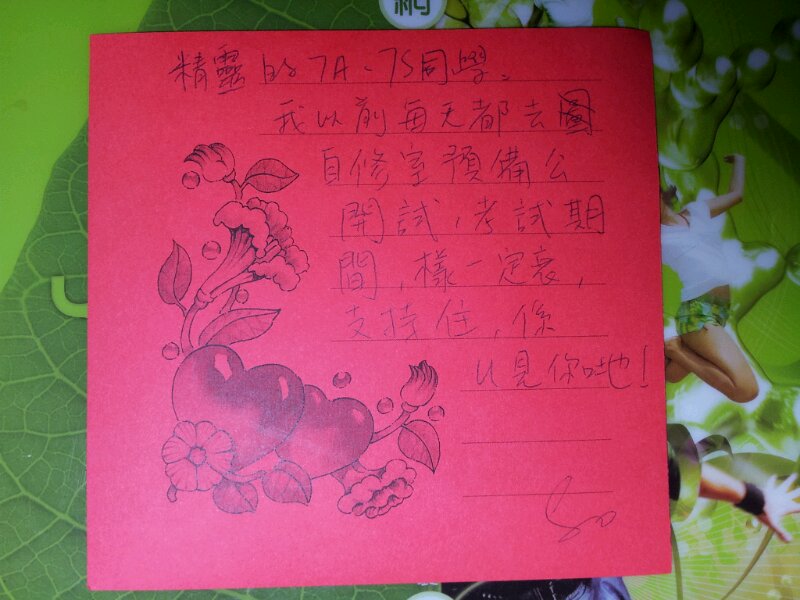 約
精靈的7A、7S同學、
我以前每天都去圖
自修室預備公
開試,考試期
間,樣一定衰,
支持住,係
U見你哋!
So